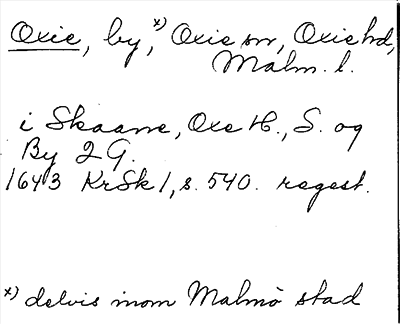 Oxie, by,ˣ⁾ Oxie sn, Oxie hd,
Malm. l.
i Skaane, Oxe H., S. og
By 2 G.
1643 KrSk1, s. 540. regest.
x) delvis inom Malmö stad